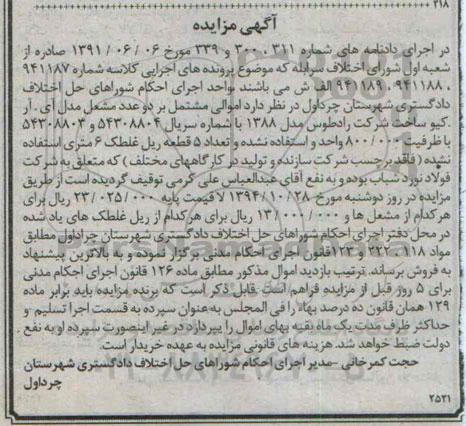 ۲۱۸
آگهی مزایده
در اجرای دادنامه های شماره ۳۱۱ ، ۳۰۰ و ۳۳۹ مورخ ۰۶ / ۰۶ / ۱۳۹۱ صادره از
شعبه اول شورای اختلاف سرابله که موضوع پرونده های اجرایی کلاسه شماره ۹۴۱۱۸۷
، ۹۴۱۱۸۸ ، ۹۴۱۱۸۹ الف ش می باشند واحد اجرای احکام شوراهای حل اختلاف
دادگستری شهرستان چرداول در نظر دارد اموالی مشتمل بر دو عدد مشعل مدل آی . آر
.کیو ساخت شرکت رادطوس مدل ۱۳۸۸ با شماره سریال ۵۴۳۰۸۸۰۴ و ۵۴۳۰۸۸۰۳
با ظرفیت ۸۰۰/۰۰۰ واحد و استفاده نشده و تعداد ۵ قطعه ریل غلطک ۶ متری استفاده
نشده ( فاقد برچسب شرکت سازنده و تولید در کارگاههای مختلف ) که متعلق به شرکت
فولاد نورد شباب بوده و به نفع آقای عبدالعباس علی کرمی توقیف گردیده است از طریق
مزایده در روز دوشنبه مورخ ۲۸ / ۱۰ / ۱۳۹۴ لا قیمت پایه ۲۳/۰۲۵/۰۰۰ ریال برای
هر کدام از مشعل ها و ۱۳/۰۰۰/۰۰۰ ریال برای هر کدام از ریل غلطک های یاد شده
در محل دفتر اجرای احکام شوراهای حل اختلاف دادگستری شهرستان چرداول مطابق
مواد ۱۱۸ ، ۱۲۲ و ۱۲۳ قانون اجرای احکام مدنی برگزار نموده و به بالاترین پیشنهاد
به فروش برساند. ترتیب بازدید اموال مذکور مطابق ماده ۱۲۶ قانون اجرای احکام مدنی
برای ۵ روز قبل از مزایده فراهم است. قابل ذکر است که برنده مزایده باید برابر ماده
۱۲۹ همان قانون ده درصد بهاء را فی المجلس به عنوان سپرده به قسمت اجرا تسلیم و
حداکثر ظرف مدت یک ماه بقیه بهای اموال را بپردازد در غیر اینصورت سپرده او به نفع
دولت ضبط خواهد شد. هزینه های قانونی مزایده به عهده خریدار است.
حجت کمرخانی –مدیر اجرای احکام شوراهای حل اختلاف دادگستری شهرستان
چرداول
۲۵۲۱